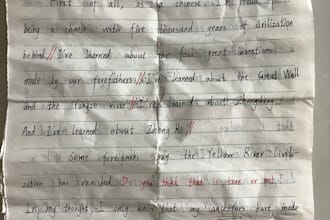 First of all, as a chinese I'm proud of
being a chinese with five thousand years of civilization
behind.// I've learned about the four great inventions
made by our forefathers.// I've learned about the Great Wall
and the River.// I've learned about
And I've learned about Zheng he.//
Some foreigners say the Yellow River Civili-
zation has vanished. Do you think that is true or not.
In my thought, I only know that my ancestors have made